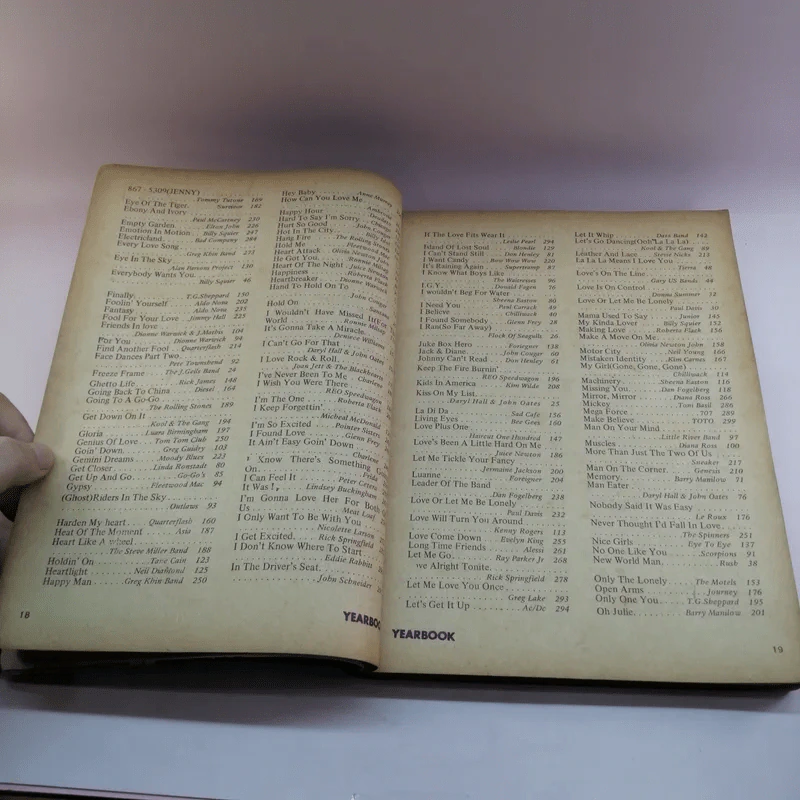 867 - 5309(JENNY)
Tommy Tutone 169
Eye Of The Tiger. Survivor 182
Ebony And Ivory
Paul McCartney 230
Empty Garden Elton John 226
Emotion In Motion Billy Squier 247
Electricland Bad Company 284
Every Love Song
Greg Kihn Band 232
Eye In The Sky
Alan Parsons Project 130
Everybody Wants You
Billy Squier 46
Finally T.G.Sheppard 150
Foolin' Yourself Aldo Nova 202
Fantasy Aldo Nova 235
Fool For Your Love Jimmy Hall 225
Friends In love
Dionne Warwick & J.Mathis 108
For You Dionne Warwick 94
Find Another Fool Quarterflash 214
Face Dances Part Two
Pete Townshend 92
Freeze Frame The J.Geils Band 24
Ghetto Life Rick James 148
Going Back To China Diesel 164
Going To A Go-Go
The Rolling Stones 189
Get Down On It
Kool & The Gang 194
Gloria Luara Birmingham 197
Genius Of Love Tom Tom Club 250
Goin' Down Greg Guidry 103
Gemini Dreams Moody Blues 223
Get Closer Linda Ronstadt 80
Get Up And Go Go-Go's 85
Gypsy Fleetwood Mac 94
(Ghost)Riders In The Sky
Outlaws 93
Harden My heart Quarterflash 160
Heat Of The Moment Asia 187
Heart Like A wheel
The Steve Miller Band 188
Holdin' On Tane Cain 123
Heartlight Neil Diamond 125
Happy Man Greg Kihn Band 250
18
Hey Baby Anne Murray
How Can You Love Me
Happy Hour
Hard To Say I'm Sorry
Hurt So Good
Hot In The City
Hang Fire The Rolling
Hold Me Fleetwood Mac
Heart Attack Olivia Newton
He Got You Ronnie Milsap
Heart Of The Night Juice Newton
Happiness Roberta
Heartbreaker Dionne Warwick
Hand To Hold On To
John Cougar
Hold On
I Wouldn't Have Missed It For
World Ronnie Milsap
It's Gonna Take A Miracle
Deniece Williams
I Can't Go For That
Daryl Hall & John Oates
I Love Rock & Roll
Joan Jett & The Blackhearts
I've Never Been To Me Charlene
I Wish You Were There
REO Speedwagon
I'm The One Roberta Flack
I Keep Forgettin'
Micheal McDonald
I'm So Excited Pointer Sisters
I Found Love Glenn Frey
It Ain't Easy Goin' Down
Charlene
I Know There's Something
On Frida
I Can Feel It Peter Cetera
It Was I Lindsey Buckingham
I'm Gonna Love Her For Both
Us Meat Loaf
I Only Want To Be With You
Nicolette Larson
I Get Excited Rick Springfield
I Don't Know Where To Start
Eddie Rabbitt
In The Driver's Seat
John Schneider
YEARBOOK
If The Love Fits Wear It
Leslie Pearl 294
Island Of Lost Soul Blondie 129
I Can't Stand Still Don Henley 81
I Want Candy Bow Wow Wow 220
It's Raining Again Supertramp 87
I Know What Boys Like
The Waitresses 96
I.G.Y. Donald Fagen 76
I wouldn't Beg For Water
Sheena Easton 80
I Need You Paul Carrack 88
I Believe Chilliwack 40
I Found Somebody Glenn Frey 28
I Ran(So Far Away)
Flock Of Seagulls 26
Juke Box Hero Foreigner 138
Jack & Diane John Cougar 60
Johnny Can't Read Don Henley 61
Keep The Fire Burnin'
REO Speedwagon 196
Kids In America Kim Wilde 208
Kiss On My List
Daryl Hall & John Oates 25
La Di Da Sad Cafe 156
Living Eyes Bee Gees 160
Love Plus One
Haircut One Hundred 147
Love's Been A Little Hard On Me
Juice Newton 186
Let Me Tickle Your Fancy
Jermaine Jackson 200
Luanne Foreigner 204
Leader Of The Band
Dan Fogelberg 218
Love Or Let Me Be Lonely
Paul Davis 232
Love Will Turn You Around
Kenny Rogers 113
Love Come Down Evelyn King 255
Long Time Friends Alessi 261
Let Me Go Ray Parker Jr 268
've Alright Tonite
Rick Springfield 278
Let Me Love You Once
Greg Lake 293
Let's Get It Up Ac/Dc 294
YEARBOOK
Let It Whip Dazz Band 142
Let's Go Dancing(Ooh La La La)
Kool & The Gang 89
Leather And Lace Stevie Nicks 213
La La La Means I Love You
Tierra 48
Love's On The Line
Gary US Bands 44
Love Is On Control
Donna Summer 12
Love Or Let Me Be Lonely
Paul Davis 30
Mama Used To Say Junior 145
My Kinda Lover Billy Squier 152
Making Love Roberta Flack 156
Make A Move On Me
Olivia Newton John 158
Motor City Neil Young 166
Mistaken Identity Kim Carnes 167
My Girl(Gone, Gone, Gone)
Chilliwack 114
Machinery Sheena Easton 116
Missing You Dan Fogelberg 118
Mirror, Mirror Diana Ross 266
Mickey Toni Basil 286
Mega Force 707 289
Make Believe TOTO 299
Man On Your Mind
Little River Band 97
Muscles Diana Ross 100
More Than Just The Two Of Us
Sneaker 217
Man On The Corner Genesis 210
Memory Barry Manilow 71
Man Eater
Daryl Hall & John Oates 76
Nobody Said It Was Easy
Le Roux 176
Never Thought I'd Fall In Love
The Spinners 251
Nice Girls Eye To Eye 137
No One Like You Scorpions 91
New World Man Rush 38
Only The Lonely The Motels 153
Open Arms Journey 176
Only One You T.G.Sheppard 195
Oh Julie Barry Manilow 201
19